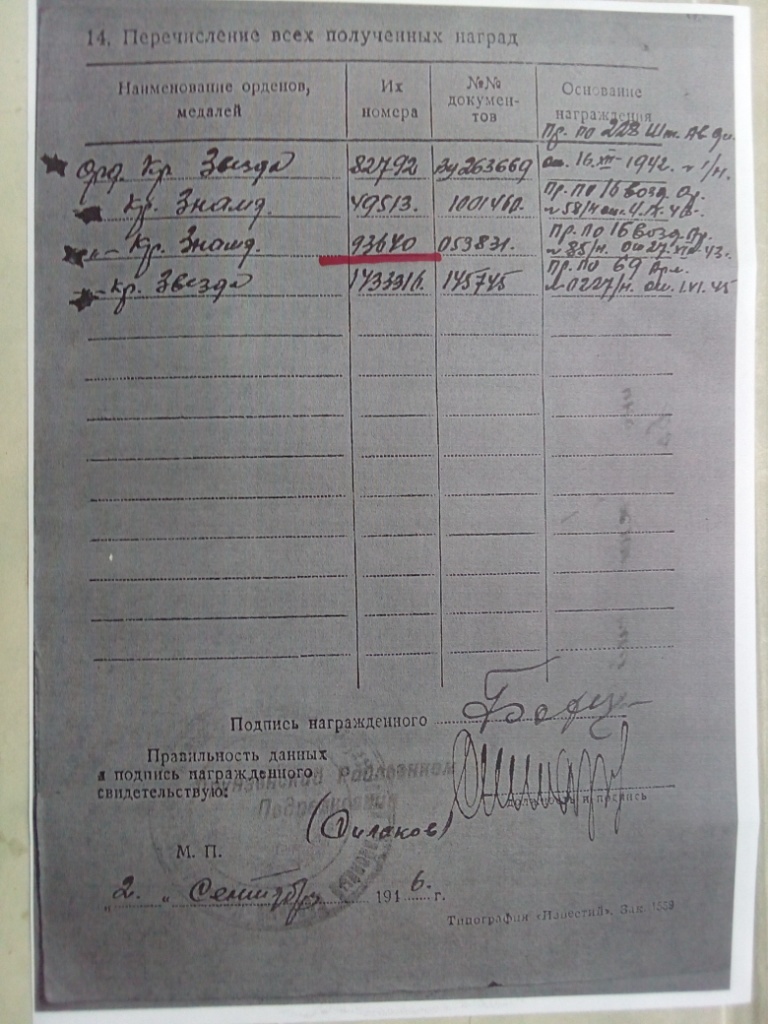 14. Перечисление всех полученных наград
Наименование орденов, медалей
Их номера
№№ докумен-тов
Основание награждения
Орд. Кр. Звезда 82792 263669 Пр. по 228 Шт. Ав. от. 16. XII-1942. № 1/н.
Кр. Знамя. 49513. 1001460. Пр. по 16 Возд.
-"- Кр. Знамя. 93640 053831. Пр. по 16 Возд. № 85/н.
-"- Кр. Звезда 1433316. 145745 Пр. по 69 Арм. № 0227/н. от. 1.VI.45
Подпись награжденного
Правильность данных
и подпись награжденного
свидетельствую:
должность и подпись
М. П.
„2. “ Сентября 1946. г.
Типография «Известий». Зак.